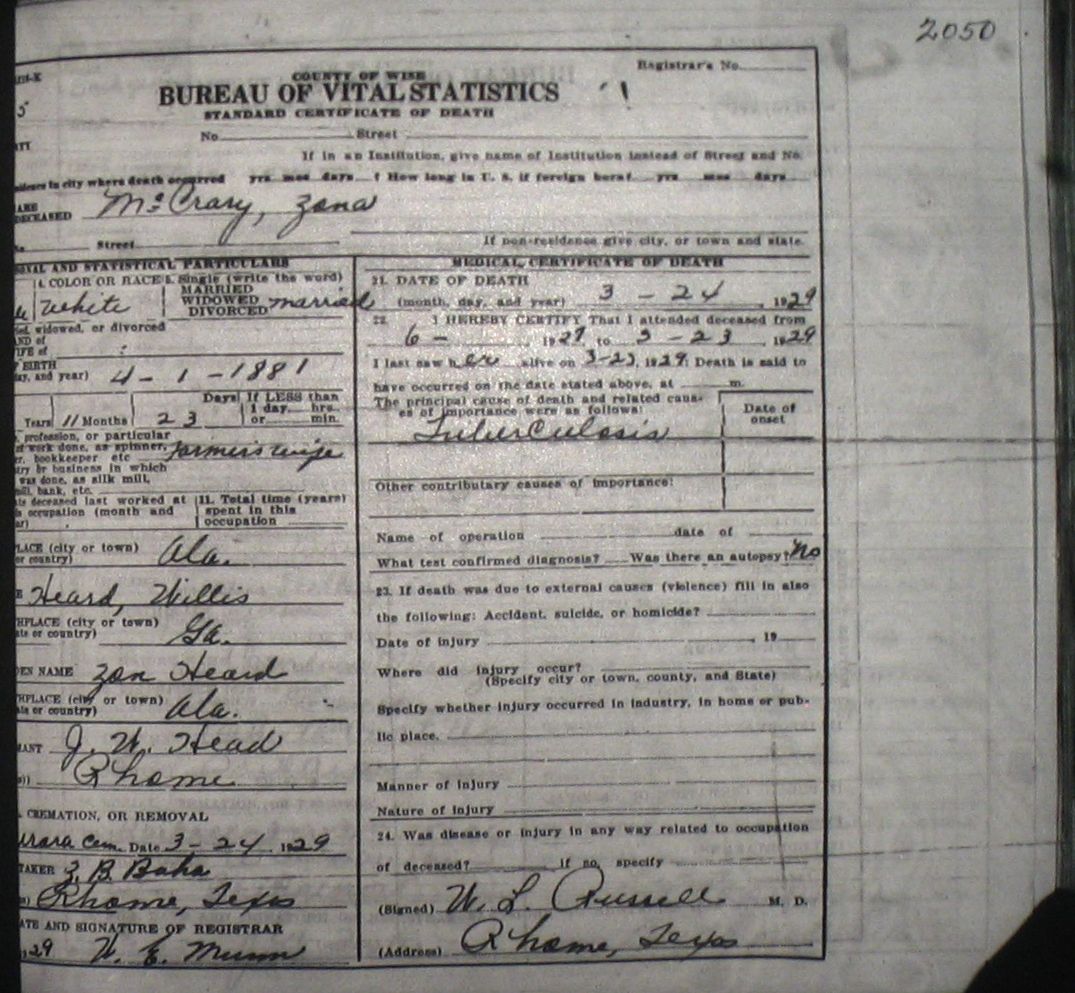 2050
COUNTY OF WISE
Registrar's No.
BUREAU OF VITAL STATISTICS
5
STANDARD CERTIFICATE OF DEATH
No. Street
If in an Institution, give name of Institution instead of Street and No.
in city where death occurred yrs mos days ? How long in U. S. if foreign born? yrs mos days
DECEASED McCrary, Zona
Street
If non-residence give city, or town and state.
AND STATISTICAL PARTICULARS
4. COLOR OR RACE 5. Single (write the word)
MARRIED
White WIDOWED married
DIVORCED
widowed, or divorced
BIRTH
day, and year) 4 - 1 - 1881
Days If LESS than
1 day hrs.
Years 11 Months 23 or min.
profession, or particular
work done, as spinner, farmers wife
bookkeeper etc
or business in which
was done, as silk mill,
mill, bank, etc.
deceased last worked at 11. Total time (years)
occupation (month and spent in this
occupation
(city or town) Ala.
or country)
Heard, Willis
(city or town)
or country) Ga.
NAME Zon Heard
(city or town)
or country) Ala.
J. W. Head
Rhome
CREMATION, OR REMOVAL
Cem. Date 3 - 24 1929
Z. B. Baha
Rhome, Texas
AND SIGNATURE OF REGISTRAR
29 W. E. Munn
MEDICAL CERTIFICATE OF DEATH
21. DATE OF DEATH
(month, day, and year) 3 - 24 1929
22. I HEREBY CERTIFY That I attended deceased from
6 - , 1927 to 3 - 23 1929
I last saw her alive on 3-23, 1929. Death is said to
have occurred on the date stated above, at m.
The principal cause of death and related caus-
es of importance were as follows: Date of onset
Tuberculosis
Other contributary causes of importance:
Name of operation date of
What test confirmed diagnosis? Was there an autopsy? No
23. If death was due to external causes (violence) fill in also
the following: Accident, suicide, or homicide?
Date of injury , 19
Where did injury occur?
(Specify city or town, county, and State)
Specify whether injury occurred in industry, in home or pub-
lic place.
Manner of injury
Nature of injury
24. Was disease or injury in any way related to occupation
of deceased? if no, specify
(Signed) W. L. Russell M. D.
(Address) Rhome, Texas